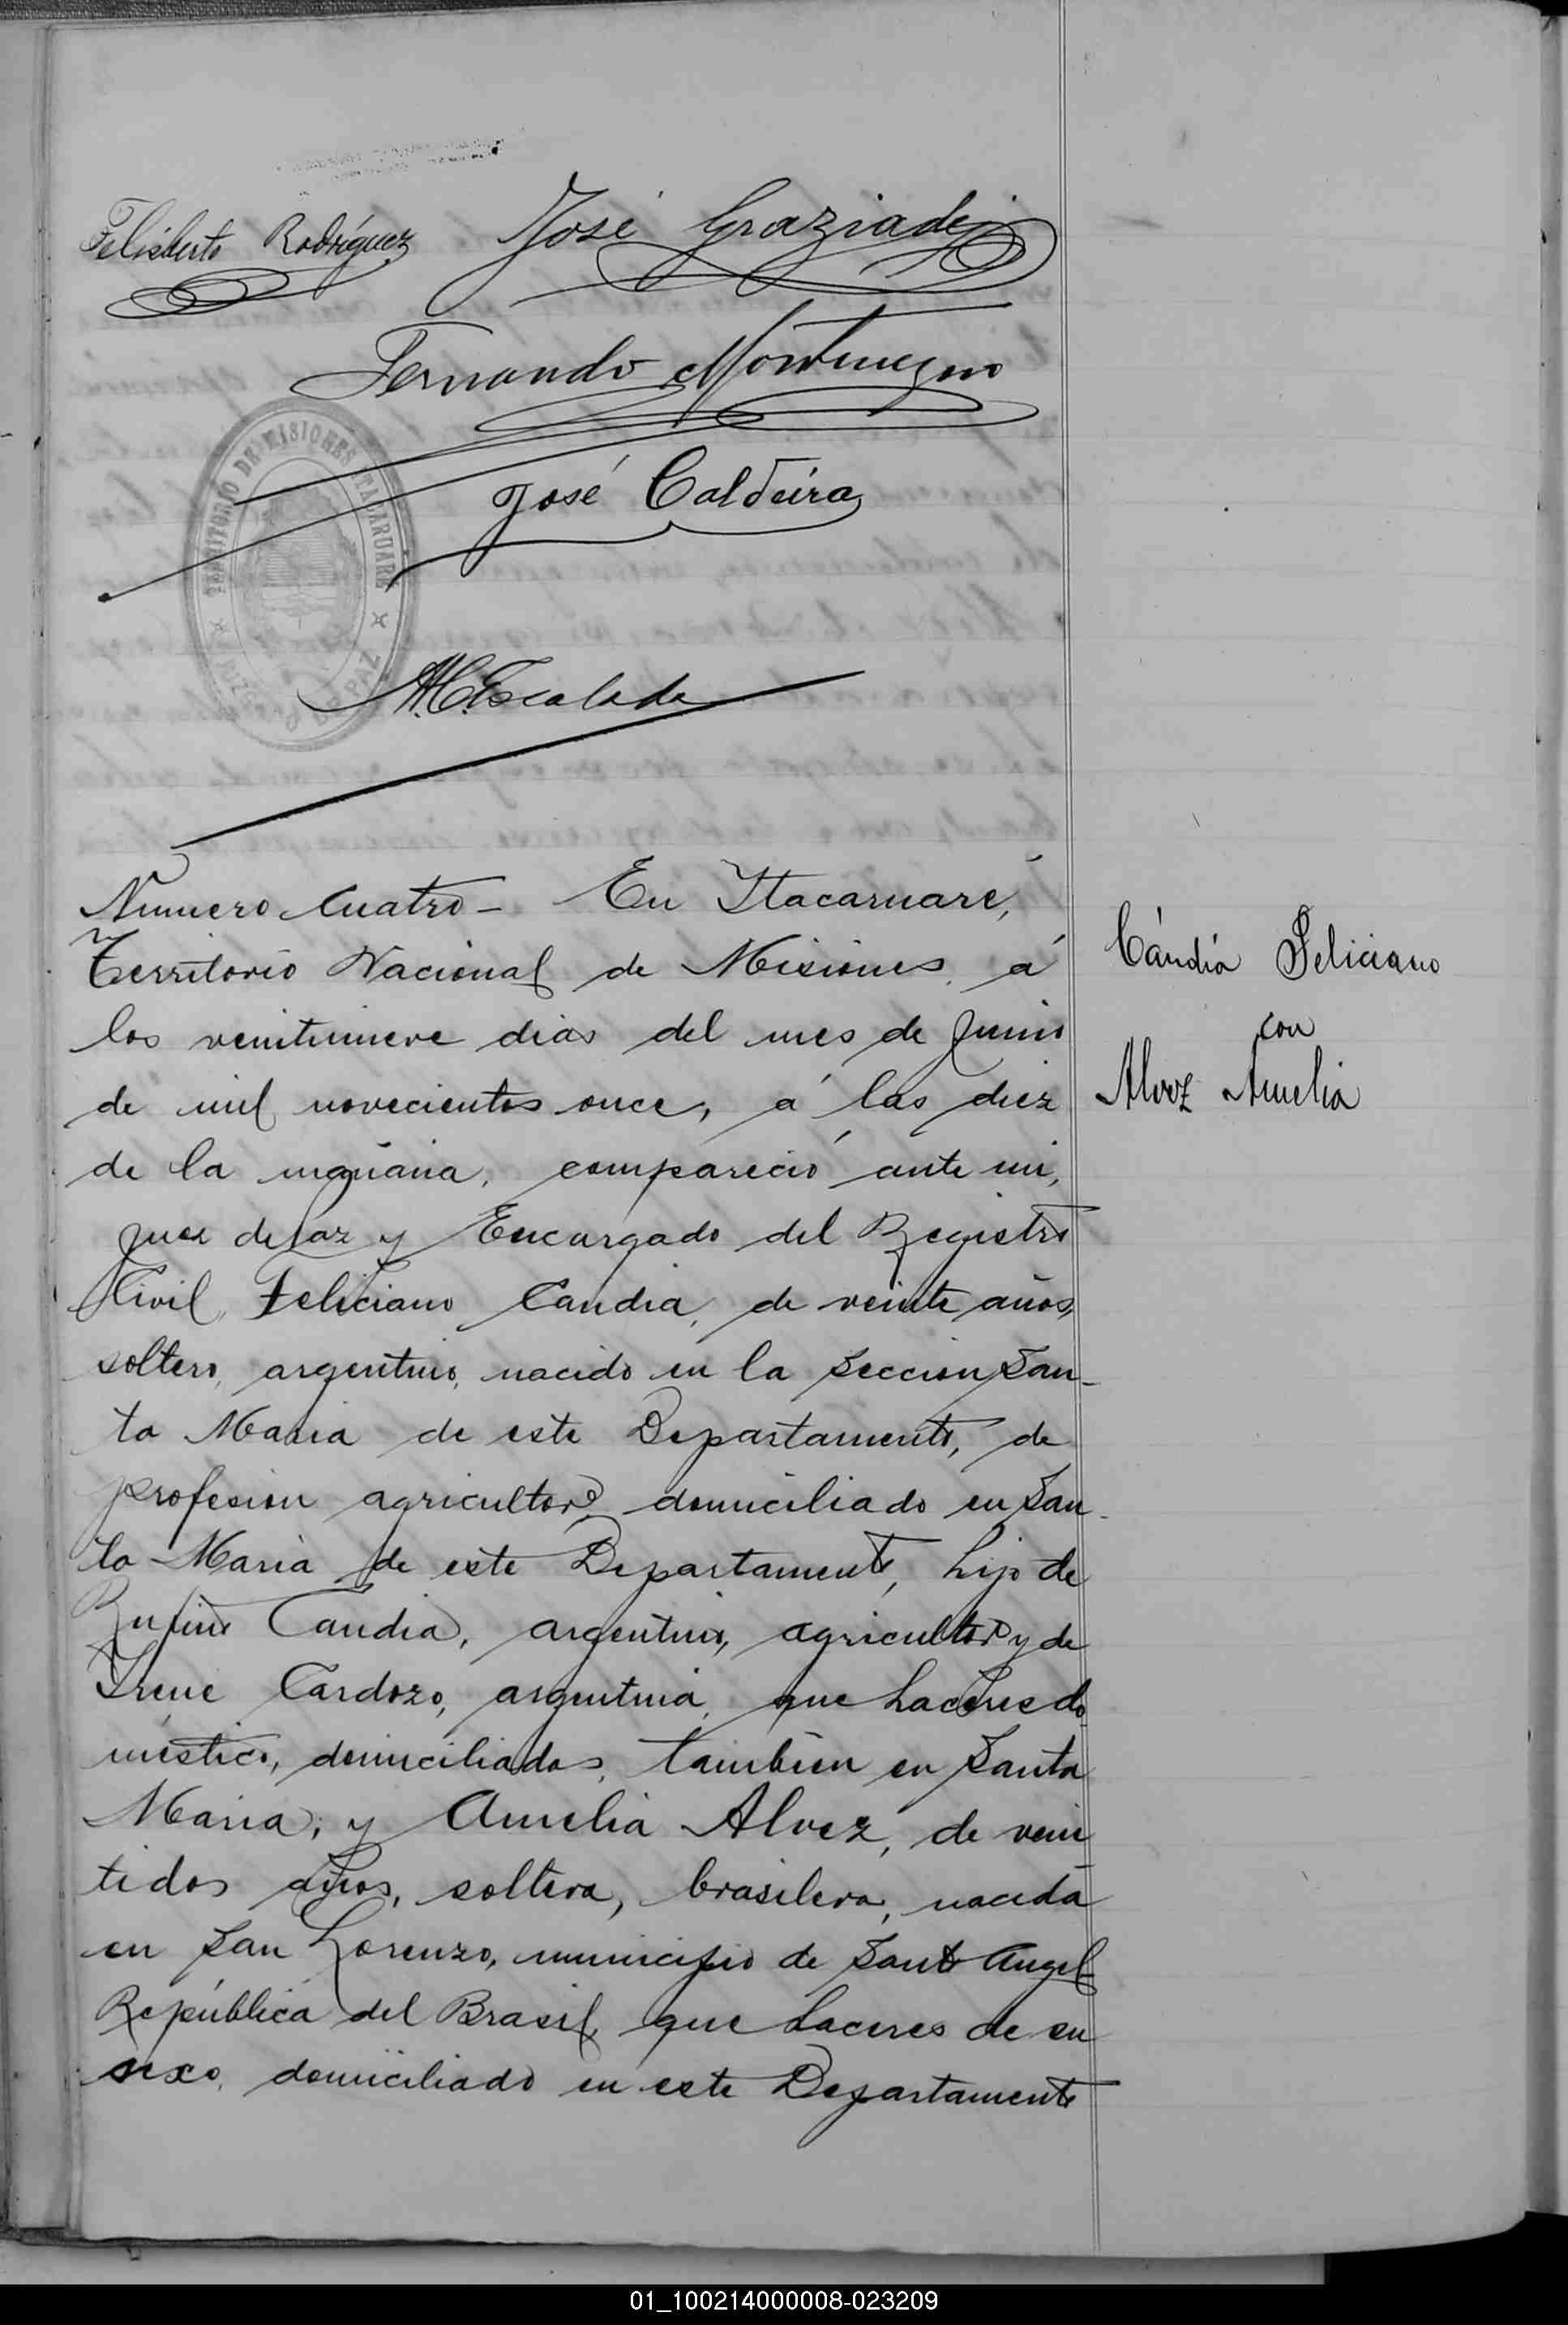 Felisberto Rodríguez José Graziadei
Fernando Montenegro
TERRITORIO DE MISIONES ITACARUARE
José Caldeira
A.C. Escalada
Numero Cuatro - En Itacaruaré,
Territorio Nacional de Misiones, á
los veintinueve dias del mes de Junio
de mil novecientos once, á las diez
de la mañana, compareció ante mi,
Juez de Paz y Encargado del Registro
Civil, Feliciano Candia, de veinte años,
soltero, argentino, nacido en la seccion San-
ta Maria de este Departamento, de
profesion agricultor, domiciliado en San-
ta Maria de este Departamento, hijo de
Rufino Candia, argentino, agricultor y de
Irene Cardozo, argentina, que haceres do-
mestico, domiciliados, tambien en Santa
Maria; y Amelia Alvez, de vein
tidos años, soltera, brasilera, nacida
en San Lorenzo, municipio de Santo Angel
República del Brasil, que haceres de su
sexo, domiciliado en este Departamento
Cándia Feliciano
con
Alvez Amelia
01_100214000008-023209